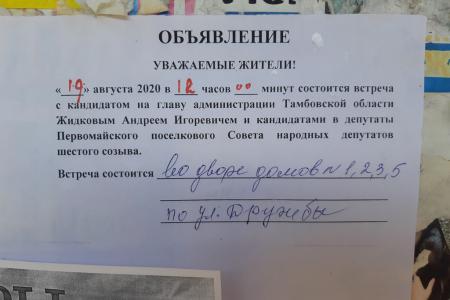 ОБЪЯВЛЕНИЕ
УВАЖАЕМЫЕ ЖИТЕЛИ!
«19» августа 2020 в 18 часов 00 минут состоится встреча
с кандидатом на главу администрации Тамбовской области
Жидковым Андреем Игоревичем и кандидатами в депутаты
Первомайского поселкового Совета народных депутатов
шестого созыва.
Встреча состоится во дворе домов № 1,2,3,5
по ул. Дружбы